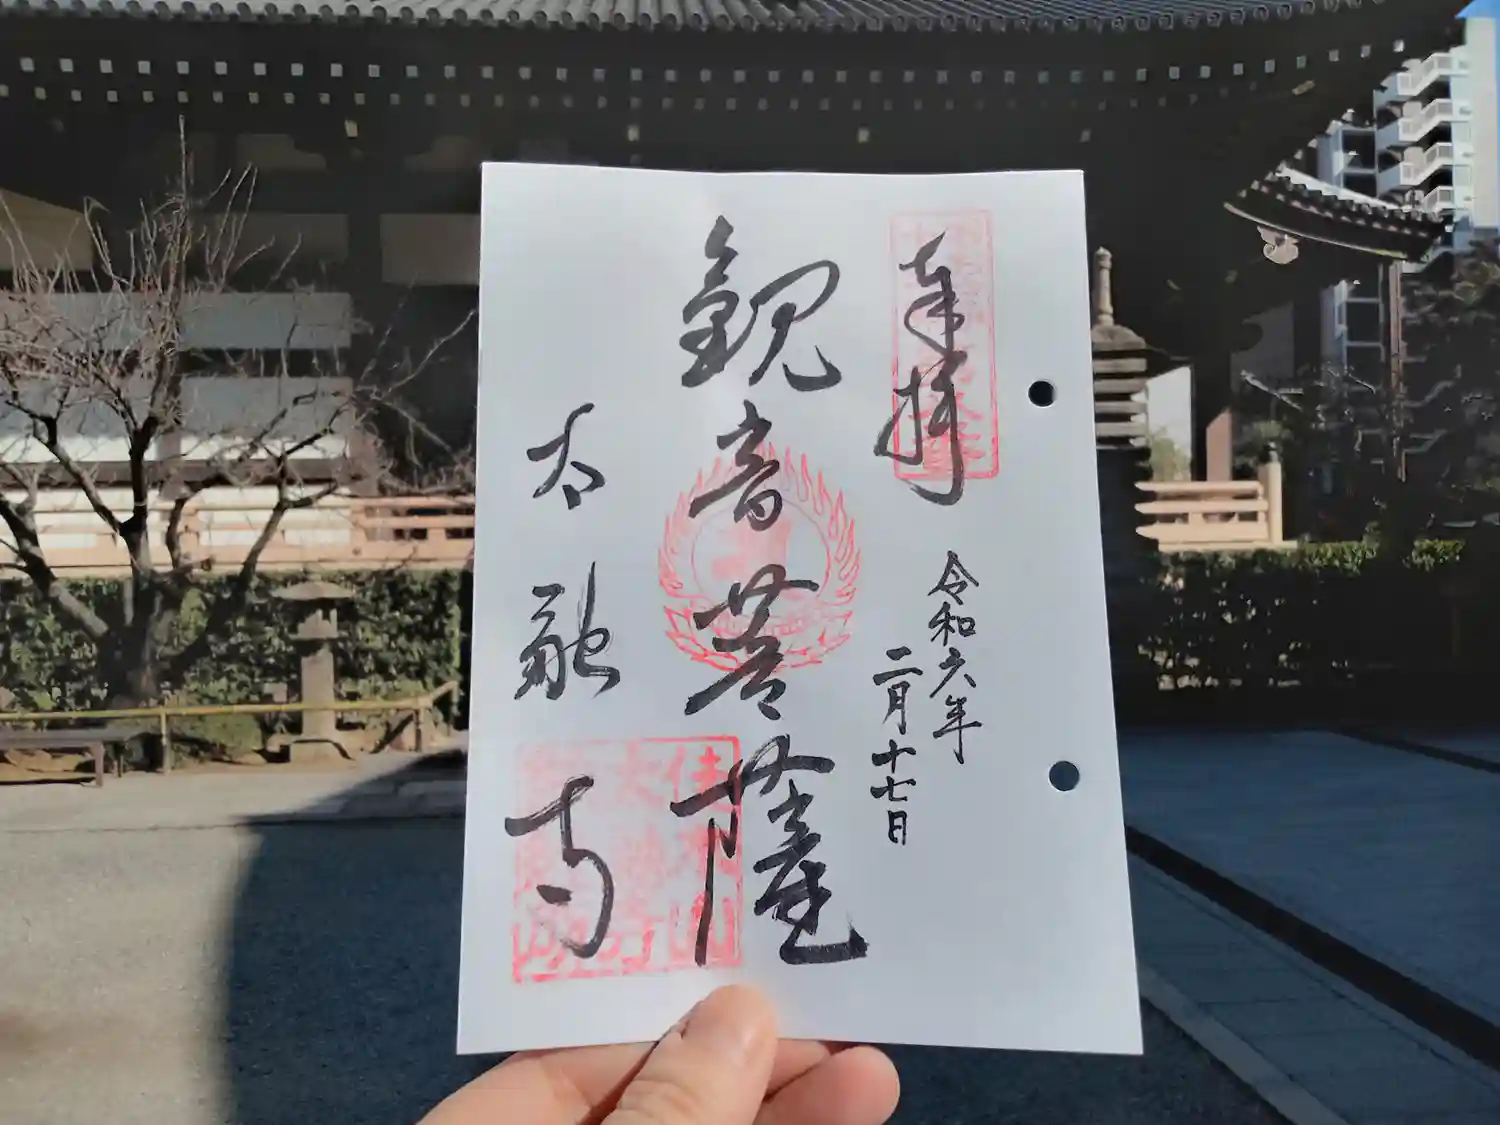 奉拝
令和六年
二月十七日
観音菩薩
太融寺